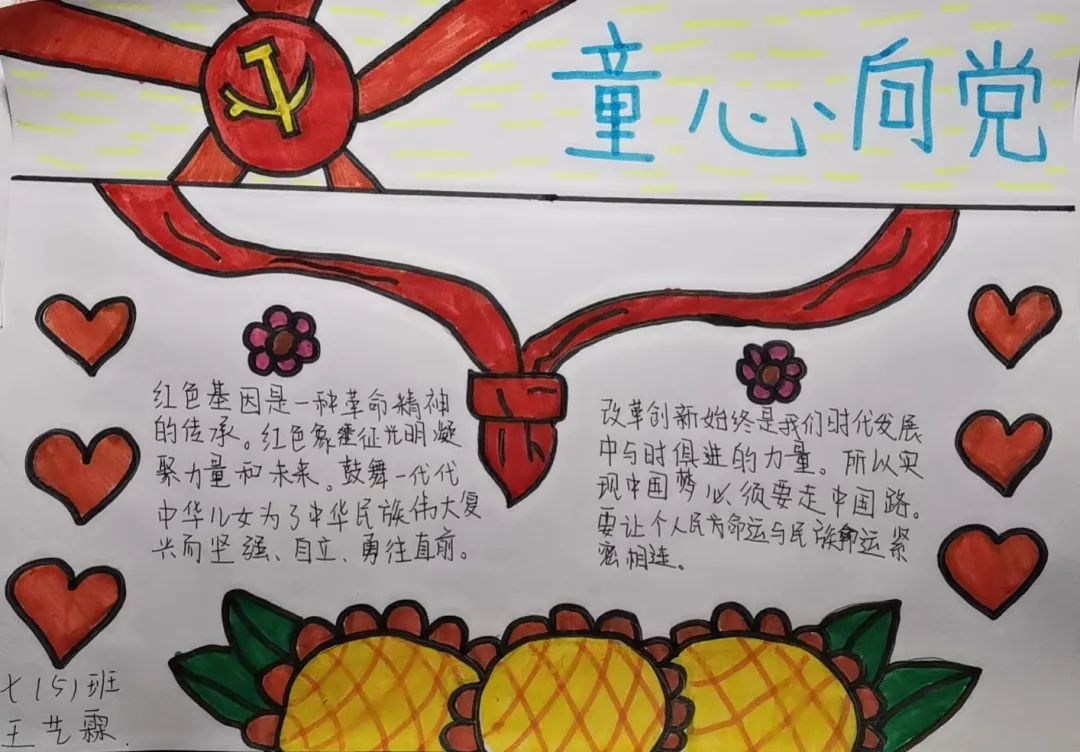 童心向党
红色基因是一种革命精神
的传承。红色象征光明凝
聚力量和未来。鼓舞一代代
中华儿女为了中华民族伟大复
兴而坚强、自立、勇往直前。
改革创新始终是我们时代发展
中与时俱进的力量。所以实
现中国梦必须要走中国路。
要让个人民族命运与民族命运紧
密相连。
七(5)班
王艺霖